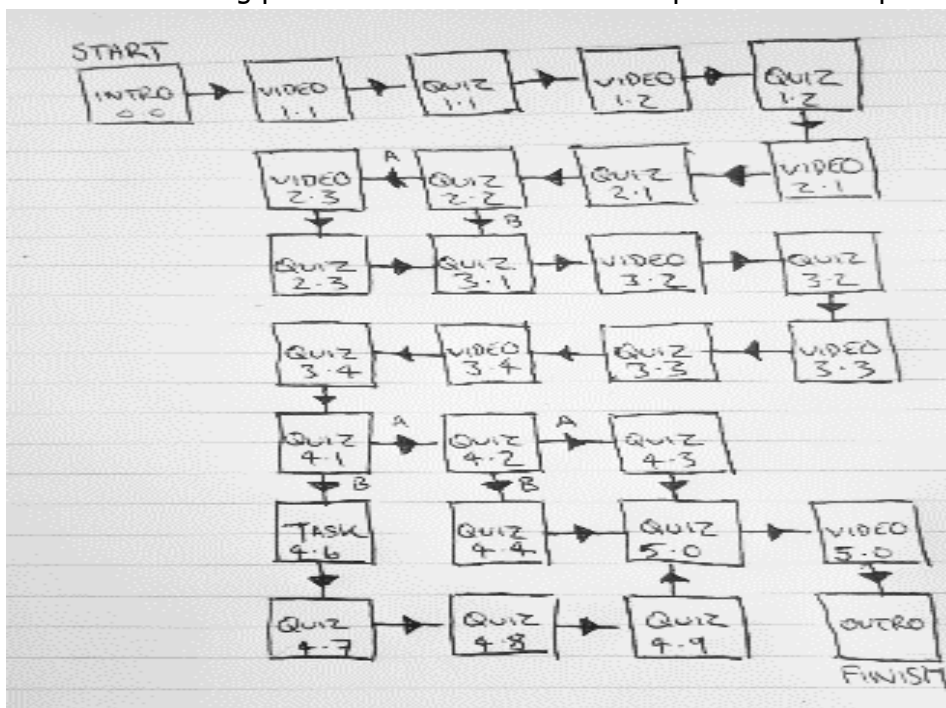 START
INTRO
0.0
VIDEO
1.1
QUIZ
1.1
VIDEO
1.2
QUIZ
1.2
VIDEO
2.3
A
QUIZ
2.2
QUIZ
2.1
VIDEO
2.1
B
QUIZ
2.3
QUIZ
3.1
VIDEO
3.2
QUIZ
3.2
QUIZ
3.4
VIDEO
3.4
QUIZ
3.3
VIDEO
3.3
QUIZ
4.1
A
QUIZ
4.2
A
QUIZ
4.3
B
B
TASK
4.6
QUIZ
4.4
QUIZ
5.0
VIDEO
5.0
QUIZ
4.7
QUIZ
4.8
QUIZ
4.9
OUTRO
FINISH